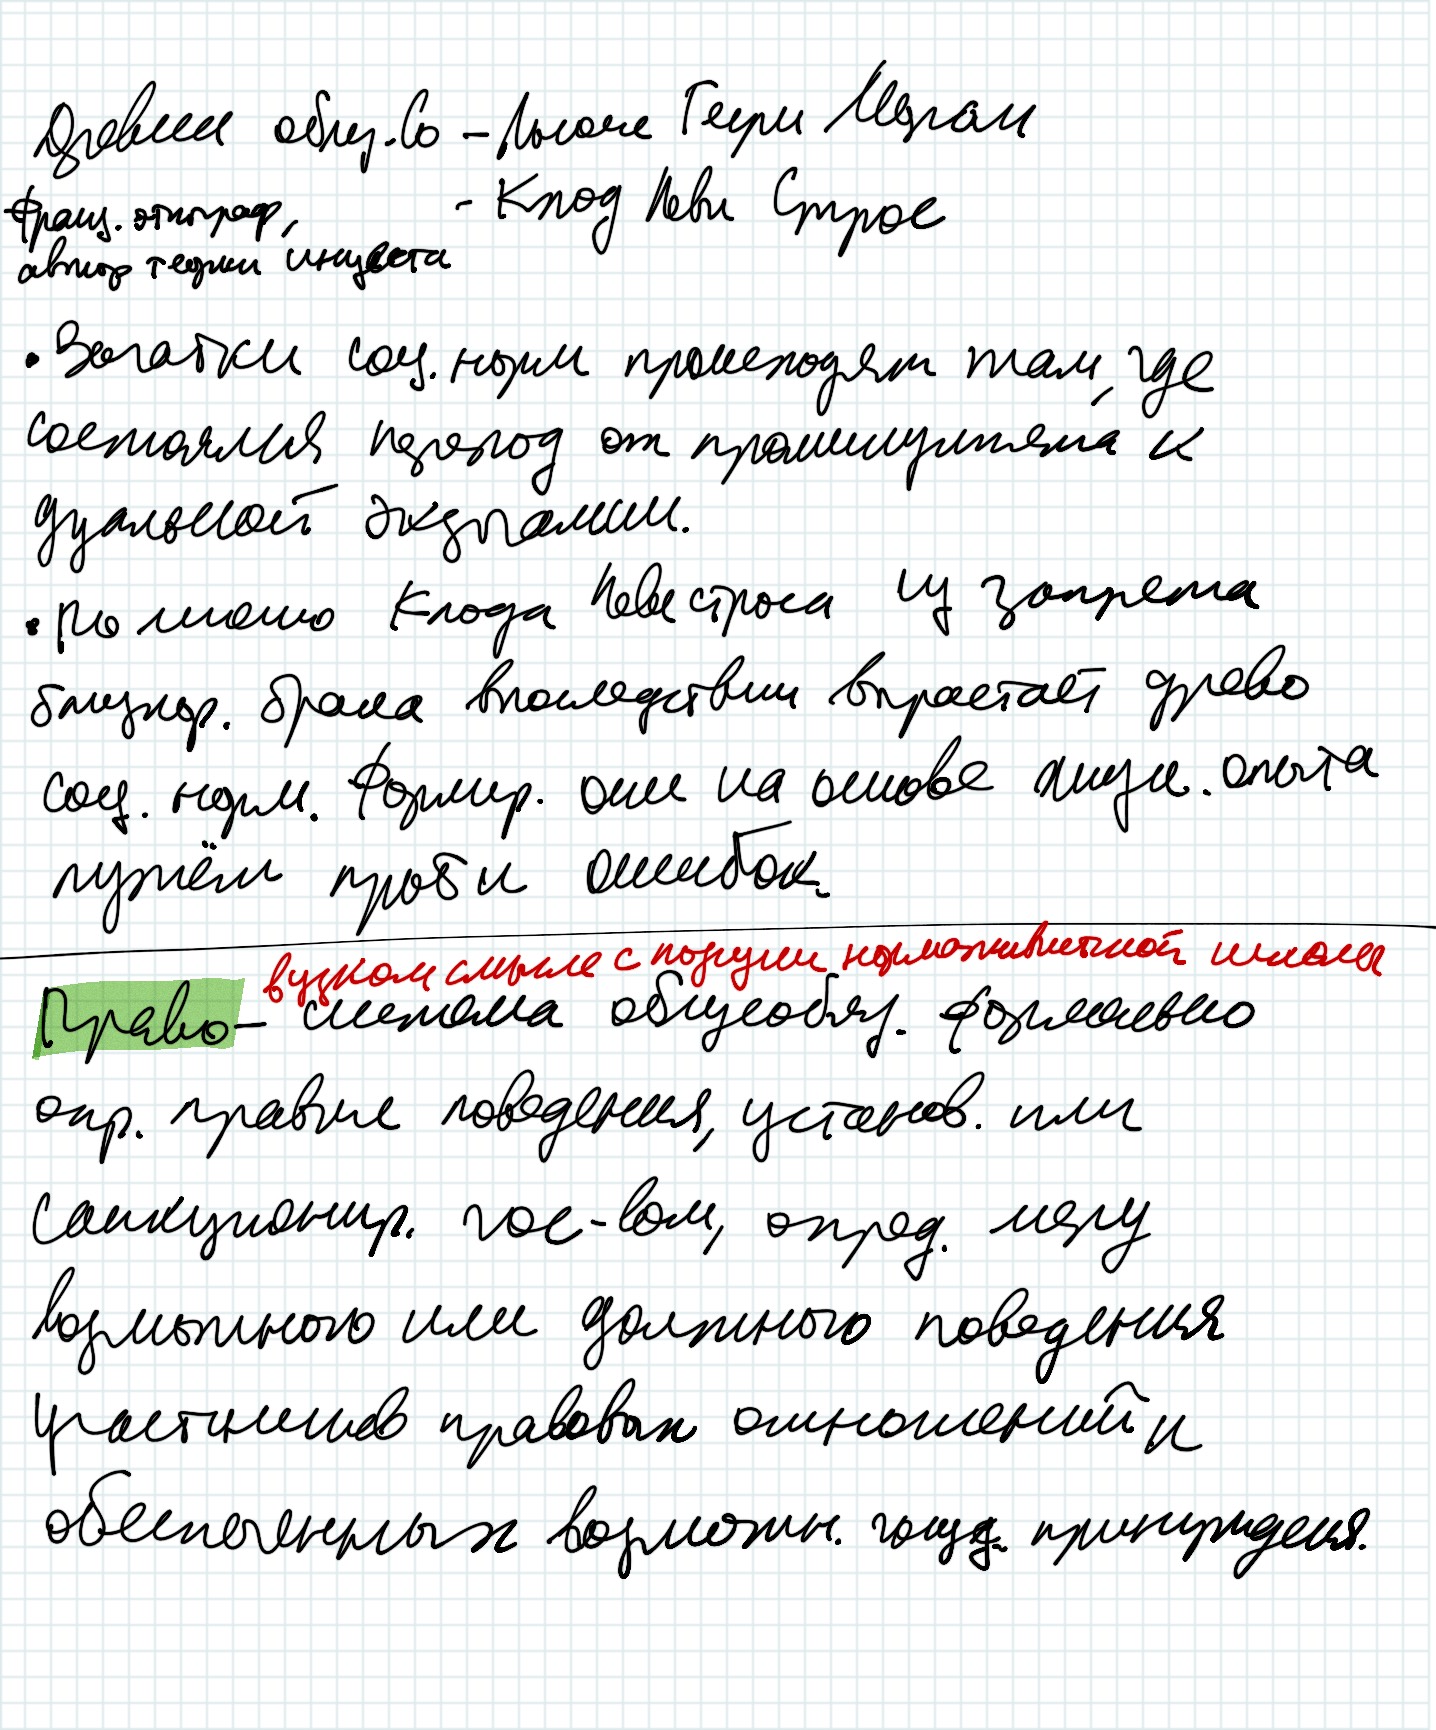 Древни общ.во – Льюис Генри Морган
франц. этнограф,
- Клод Леви Строс
автор теории инцеста
• Зачатки соц. норм происходят там, где
состоялся переход от промискуитета к
дуальной экзогамии.
• По мнению Клода Левистроса из запрета
близкор. брака впоследствии вырастает древо
соц. норм. Формир. они на основе жизн. опыта
путём проб и ошибок.
в узком смысле с позиции нормативистской школы
Право – система общеобяз. формально
опр. правил поведения, установ. или
санкционир. гос-вом, опред. меру
возможного или должного поведения
участников правовых отношений и
обеспеченных возможн. госуд. принуждения.